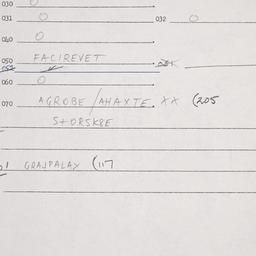 030 O
031 O 032 O
040 O
050 FACIREVET
052
060 O
070 AGROBE/AHAXTE. XX (205
STORSKBE
1 GRAJPALAX (117